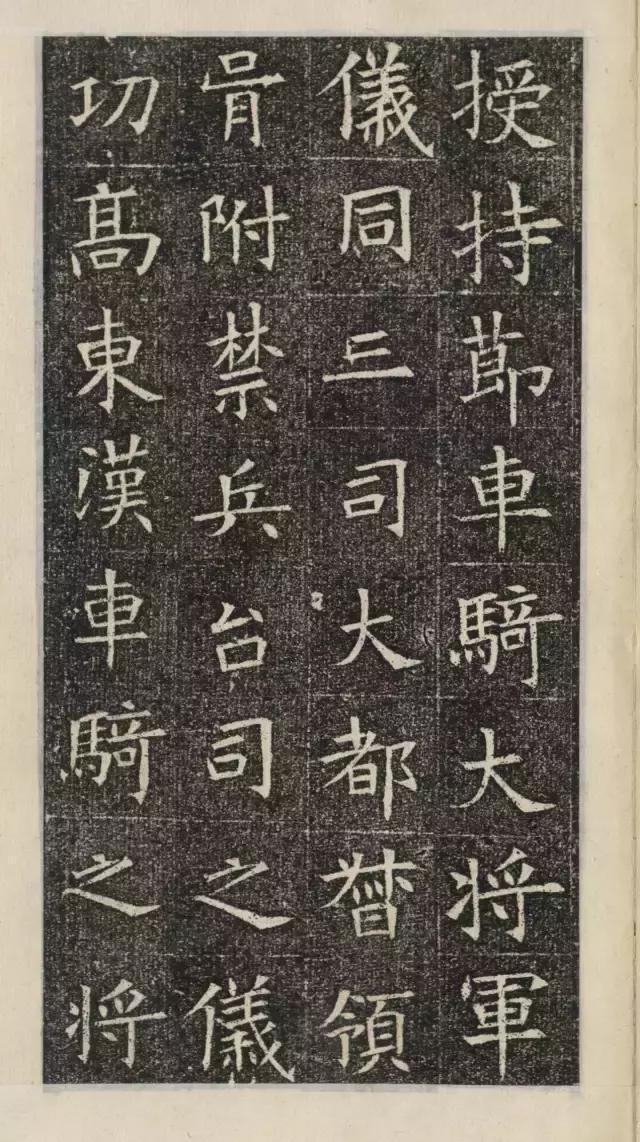 授持節車騎大將軍
儀同三司大都督領
胥附禁兵台司之儀
功髙東漢車騎之將